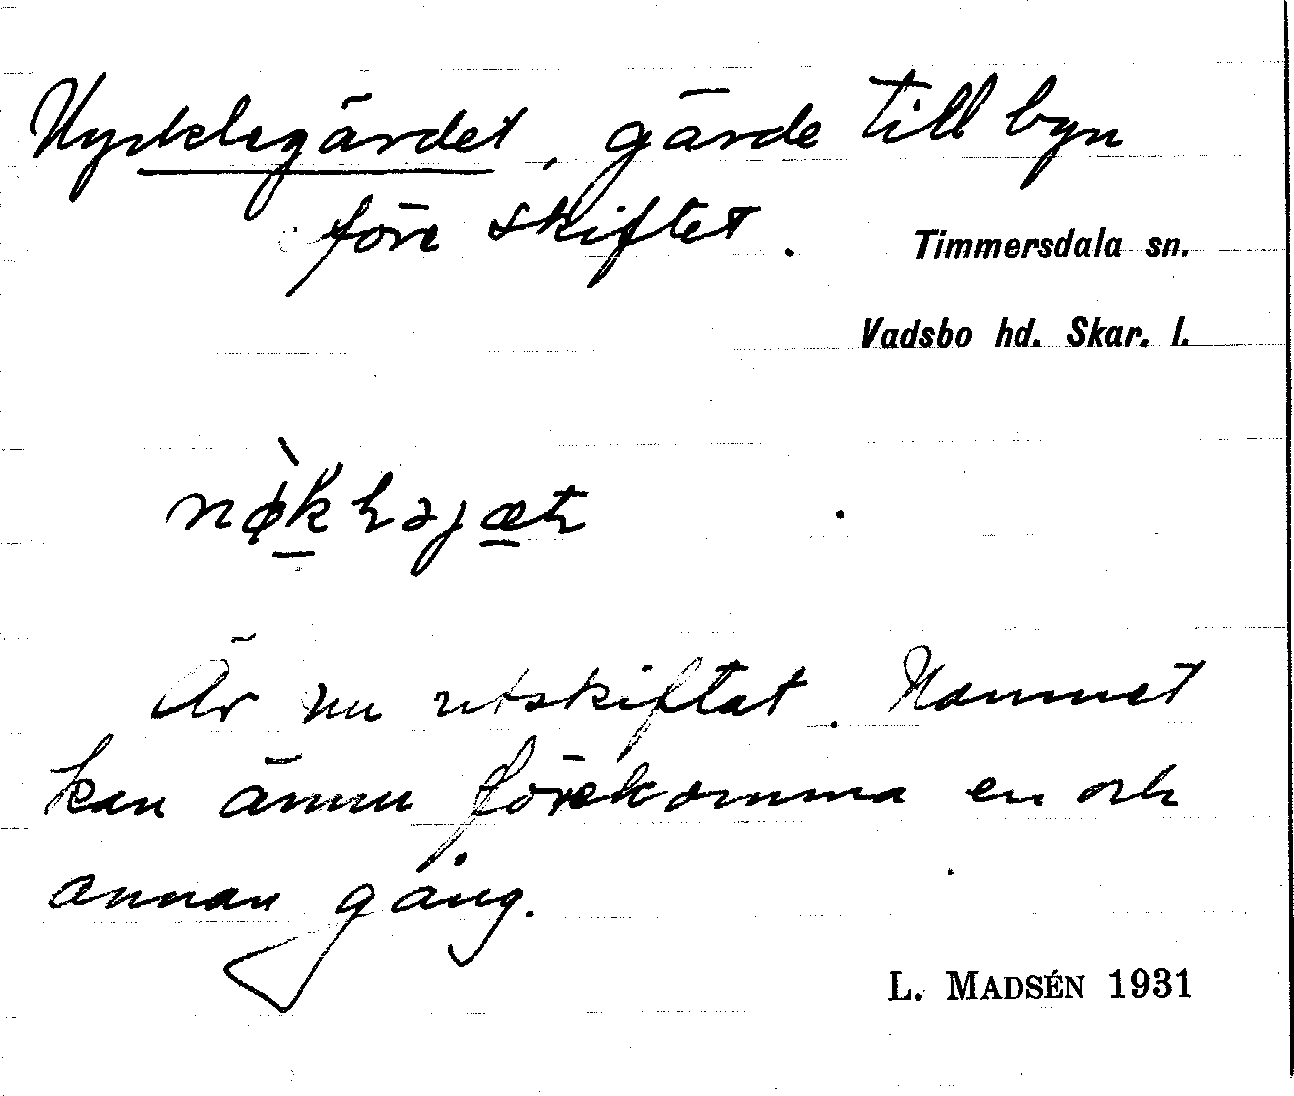 Nyckelegärdet, gärde till byn
före skiftet.
Timmersdala sn.
Vadsbo hd. Skar. l.
Är nu utskiftat. Namnet
kan ännu förekomma en och
annan gång.
L. MADSÉN 1931